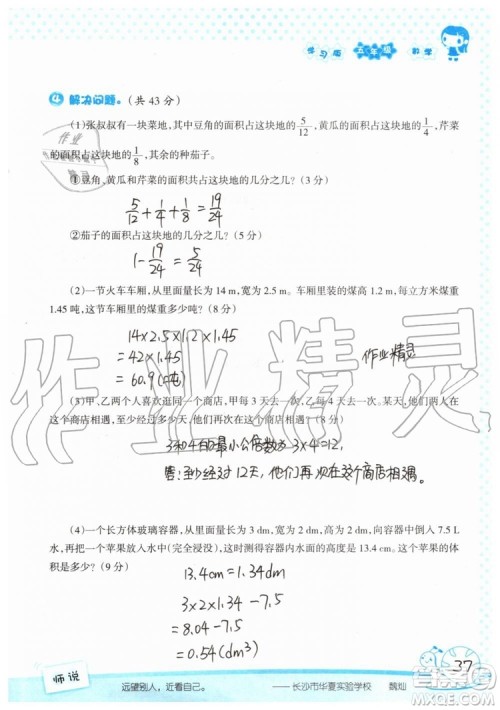 练习版 五年级 数学
④ 解决问题。(共 43 分)
(1)张叔叔有一块菜地,其中豆角的面积占这块地的5/12,黄瓜的面积占这块地的1/4,芹菜
的面积占这块地的1/8,其余的种茄子。
①豆角、黄瓜和芹菜的面积共占这块地的几分之几?(3 分)
5/12+1/4+1/8=19/24
②茄子的面积占这块地的几分之几?(5 分)
1-19/24=5/24
(2)一节火车车厢,从里面量长为 14 m,宽为 2.5 m。车厢里装的煤高 1.2 m,每立方米煤重
1.45 吨,这节车厢里的煤重多少吨?(8 分)
14×2.5×1.2×1.45
=42×1.45
=60.9(吨)
作业精灵
(3)甲、乙两个人喜欢逛同一个商店,甲每 3 天去一次,乙每 4 天去一次。某天,他们两人在
这个商店相遇,至少经过多少天,他们再次在这个商店相遇?(9 分)
3和4的最小公倍数为3×4=12,
答:至少经过12天,他们再次在这个商店相遇。
(4)一个长方体玻璃容器,从里面量长为 3 dm,宽为 2 dm,向容器中倒入 7.5 L
水,再把一个苹果放入水中(完全浸没),这时测得容器水面的高度是 13.4 cm。这个苹果的体
积是多少?(9 分)
13.4cm=1.34dm
3×2×1.34-7.5
=0.54(dm³)
37
师说
远望别人,近看自己。
——长沙市华夏实验学校 魏灿
作业精灵
答案圈
MXQE.COM